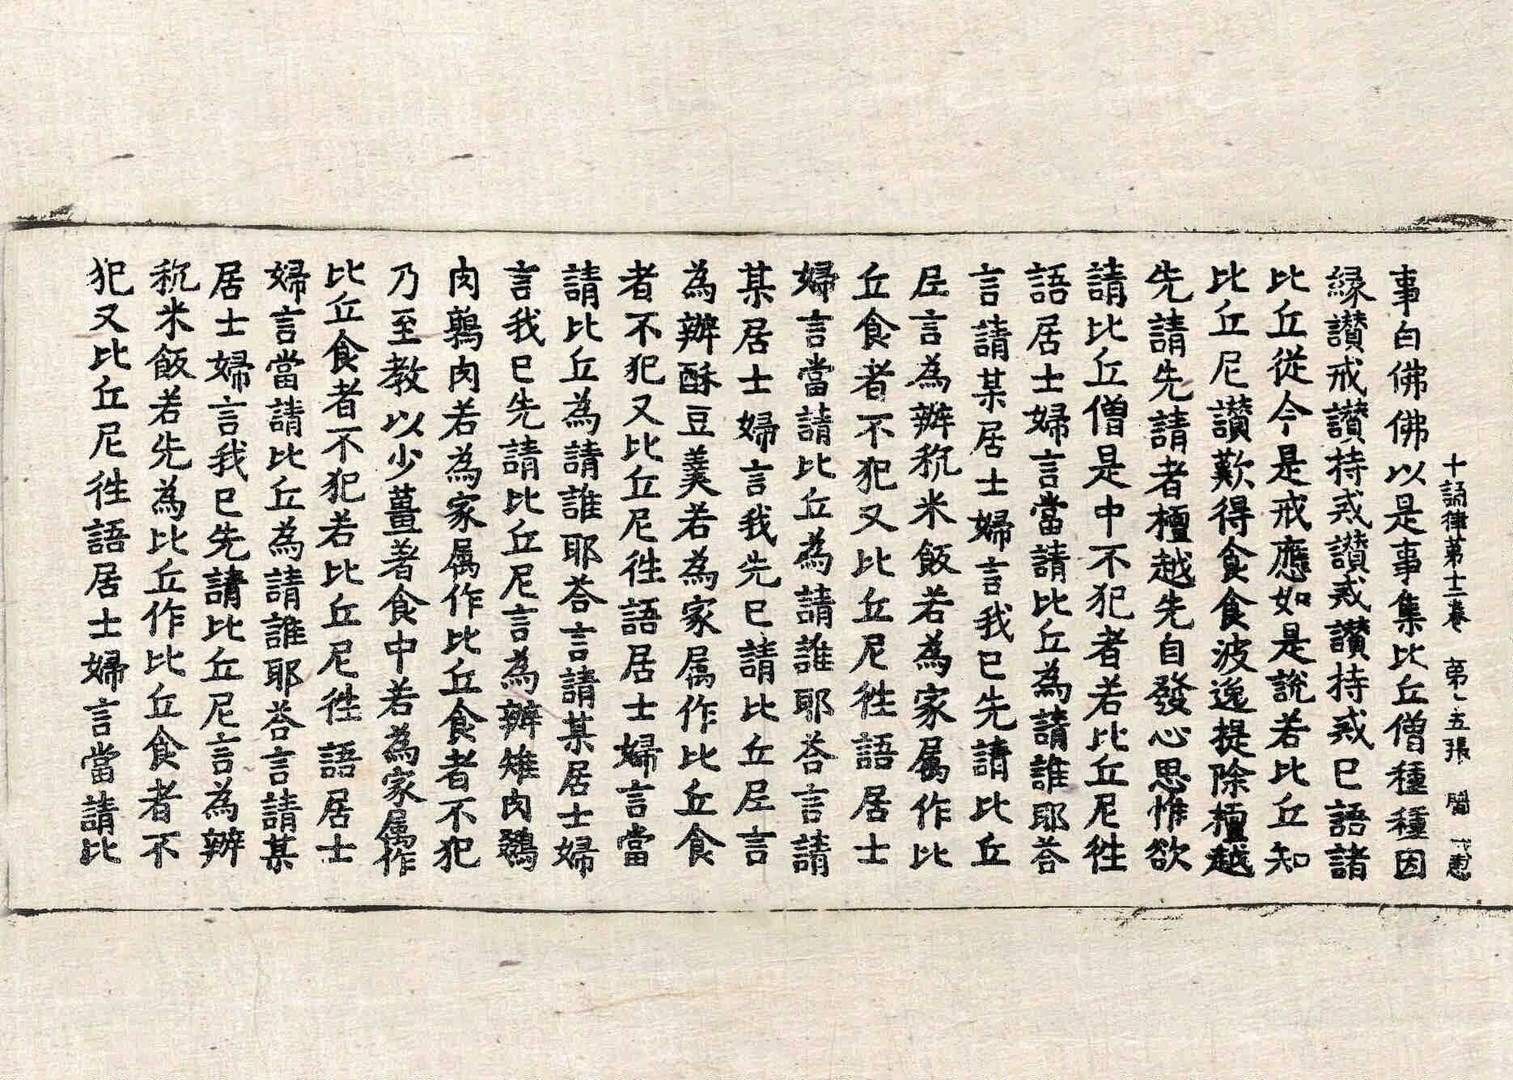 十誦律第十二卷 第 五張
事白佛佛以是事集比丘僧種種因
縁讃戒讃持戒讃戒讃持戒已語諸
比丘從今是戒應如是說若比丘知
比丘尼讃歎得食食波逸提除檀越
先請先請者檀越先自發心思惟欲
請比丘僧是中不犯者若比丘尼徃
語居士婦言當請比丘為請誰耶荅
言請某居士婦言我已先請比丘
尼言為辦粇米飯若為家属作比
丘食者不犯又比丘尼徃語居士
婦言當請比丘為請誰耶荅言請
某居士婦言我先已請比丘尼言
為辦酥豆羹若為家属作比丘食
者不犯又比丘尼徃語居士婦言當
請比丘為請誰耶荅言請某居士婦
言我已先請比丘尼言為辦雉肉鵽
肉鶉肉若為家属作比丘食者不犯
乃至教以少薑著食中若為家属作
比丘食者不犯若比丘尼徃語居士
婦言當請比丘為請誰耶荅言請某
居士婦言我已先請比丘尼言為辦
粇米飯若先為比丘作比丘食者不
犯又比丘尼徃語居士婦言當請比